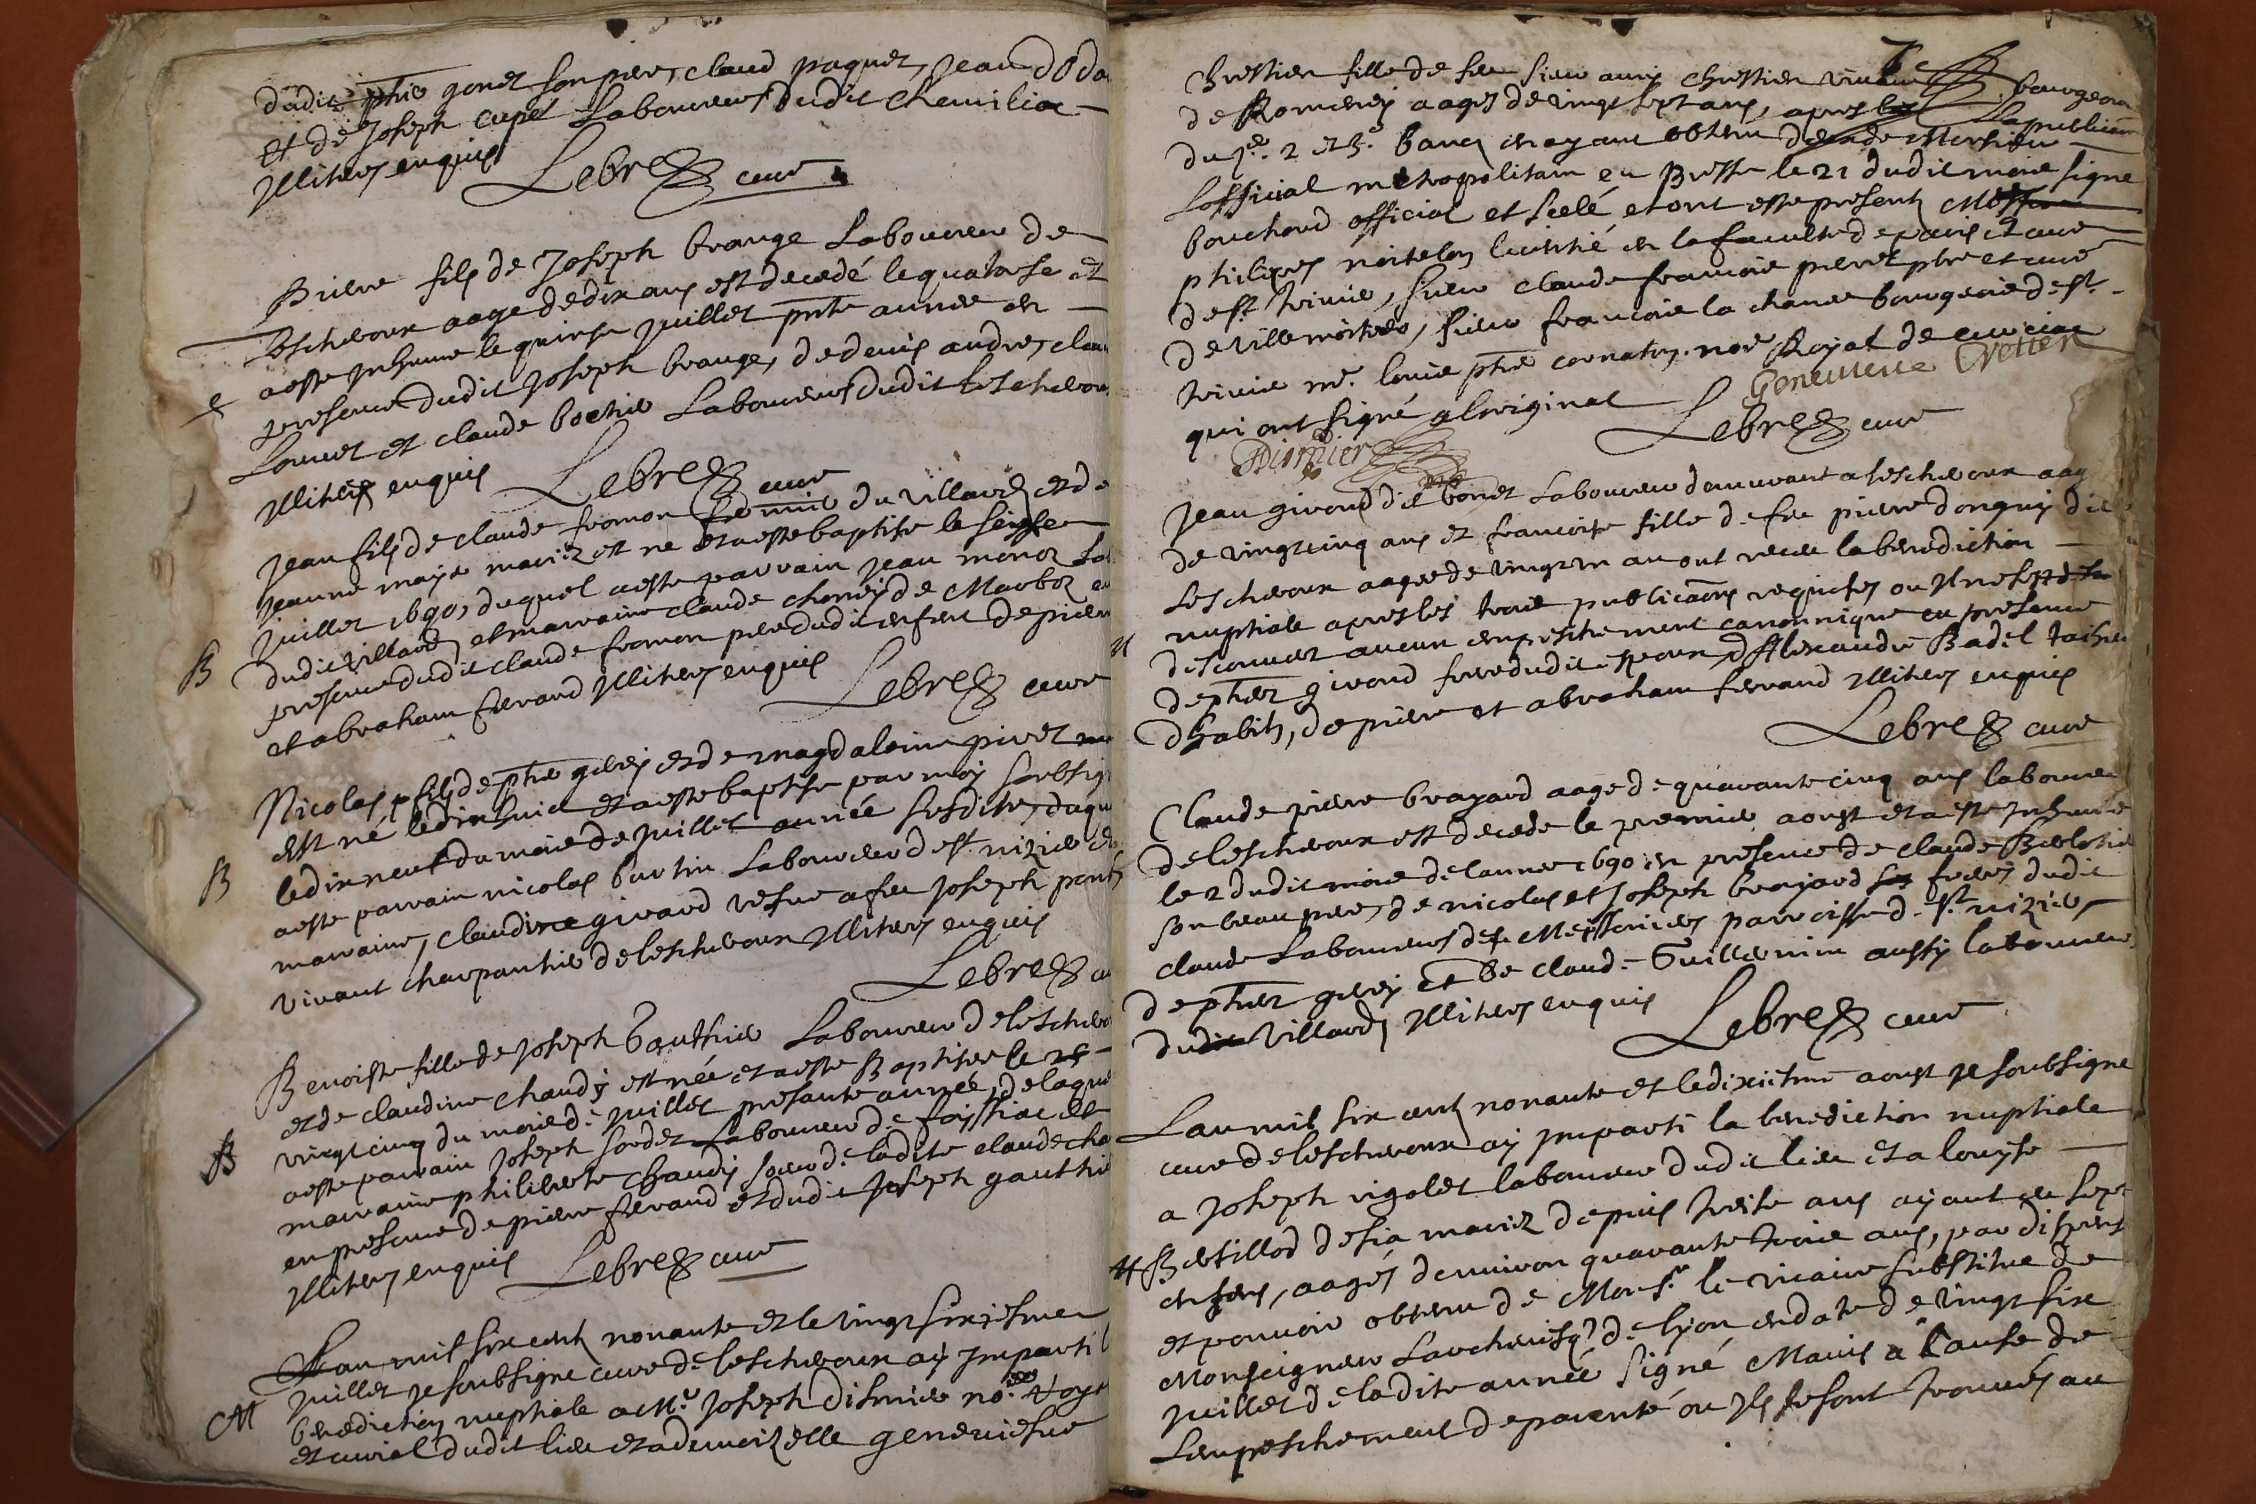 dudit phe gonet son pere, claud paquet, Jean doda
et de Joseph cupet Laboureurs dudit chevilia
Illiters enquis Lebrez cure
Pierre fils de Joseph brange Laboureur de
Lescheroux aagé de dix ans est decedé le quatorse et
a esté Inhumé le quinse Juillet pnte année en
e presence dudit Joseph brange, de denis andre, clau
Louvet et claude bochie Laboureurs dudit Lescherou
Illiters enquis Lebrez cure
Jean fils de claude froMon fermie du villard et de
Jeanne maye mariez est ne et a esté baptise le seise
Juillet 1690, duquel a esté parrain Jean monoz La
B dudit villard et marraine claude choney de Marboz en
presence dudit claude fromon pere dudit enfent de pierre
et abraham ferrand Illiters enquis Lebrez cure
Nicolas fils de phe gerey et de magdalaine pivet
est né le dix huit et a esté baptise par moy soubsig
B le dix neuf du mois de Juillet année susdite, duqu
a esté parrain nicolas burtin Laboureur de st nizier et
marraine, claudine girard vefve a feu Joseph pont
vivant charpantie de lescheroux Illiters enquis
Lebrez cu
Benoiste fille de Joseph Gauthier Laboureur de leschero
et de claudine chaudy est née et a esté Baptisée le
vingt cinq du mois de Juillet presante année, de laque
B a esté parrain Joseph sordet Laboureur de foissiac et
marraine philiberte chaudy soeur de ladite claude cha
en presence de pierre ferrand et dudit Joseph gauthie
Illiters enquis Lebrez cure
Lan mil six cent nonante et le vingt sixiesme
Juillet Je soubsigne cure de lescheroux ay Imparti l
M benediction nuptiale a Mr. Joseph dismier no.re Roy
et curial dudit lieu et a demoizelle geneviefve
Chrestien fille de feu sieur chrestien vivant bourgeois
de Romeney aagés de vingt sept ans, apres la publicaon
du 1er. 2 et 3e. banq en ayant obtenu de Monsieur
Lofficial metropolitain en Bresse le 21 dudit mois signe
bouchard official et scelé et ont esté presents
philipes noitelon licentié en la faculté de paris et cure
de st trivie, sieur claude francois pierret pbre et curé
de villemoitier, sieur francois la chance bourgeois de st
trivie mr. louis phe cornaton nore Royal de
qui ont signé a loriginal Genevieve Cretien
Dismier Lebrez cure
Jean girond dit bonet Laboureur demeurant a lescheroux aag
de vingt cinq ans et francoise fille de feu pierre donguy dit
Lescheroux aagée de vingt un an ont receu la benediction
nuptiale apres les trois publicaons requises ou Il ne sest
M descouver aucun empeschement canonnique en presence
de phet girond frere dudit epoux dAlexandre Badel taisse
dhabits, de pierre et abraham ferrand Illiters enquis
Lebrez cure
Claude pierre brayard aagé de quarante cinq ans laboureur
de lescheroux est decede le premier aoust et a esté Inhumé
le 2 dudit mois de lannee 1690 en presence de claude Berlotie
son beau pere, de nicolas et Joseph brayard freres dudit
claude Laboureurs des Meissoniers parroisse de st nizier,
de phet gerey et de claude Guillermin aussy laboureur
dudit villard Illiters enquis Lebrez cure
Lan mil six cent nonante et le dixiesme aoust Je soubsigne
cure de lescheroux ay Imparti la benediction nuptiale
a Joseph rigolet laboureur dudit lieu et a louyse
M Bertillod desia mariez depuis treise ans ayant eu sept
enfens, aagés denviron quarante trois ans, par dispense
et pouvoir obtenu de Monsr. le vicaire substitue de
Monseigneur Larchevesq. de lyon en date de vingt six
Juillet de ladite année signé Manis a Cause de
Lempeschement de parenté ou Ils se sont trouvés au